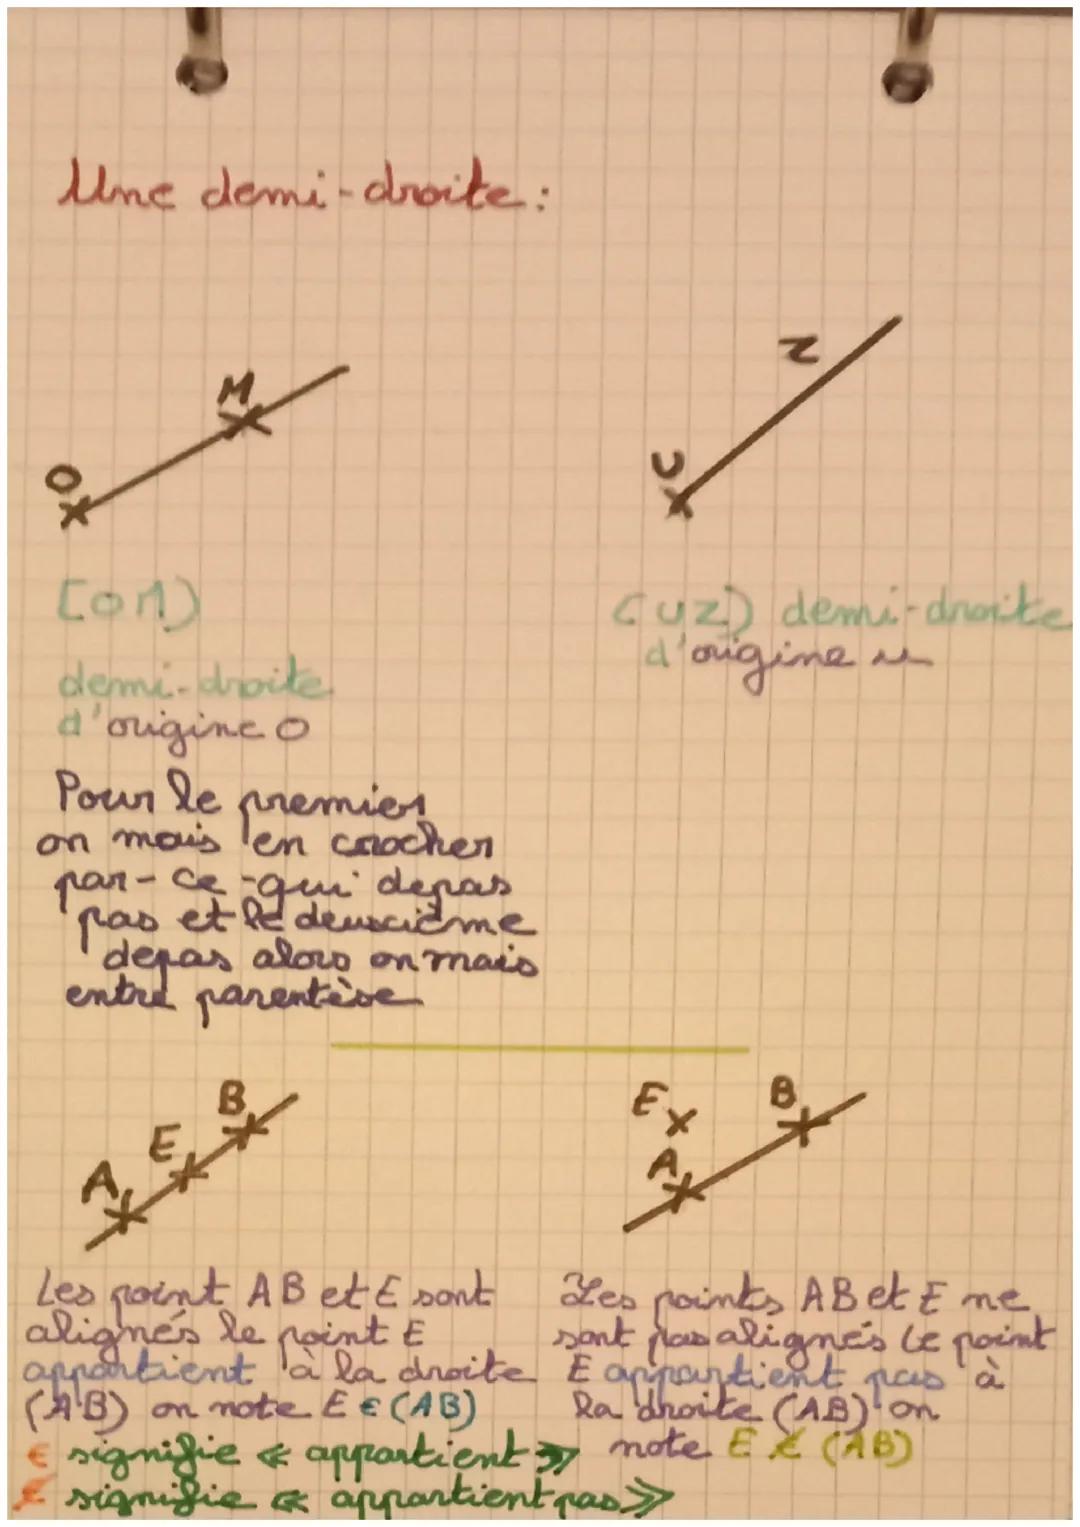 Une demi-droite :
M
O
Z
U
[OM)
demi-droite
d'origine O
[uz) demi-droite
d'origine u
Pour le premier
on mais en crocher
par-ce-qui depas
pas et le deuscième
depas alors on mais
entre parentèse
B
E
A
E
B
A
Les point AB et E sont
alignés le point E
appartient à la droite
(AB) on note E ∈ (AB)
Les points AB et E ne
sont pas alignés le point
E appartient pas à
la droite (AB) on
note E ∉ (AB)
∈ signifie « appartient »
∉ signifie « appartient pas »